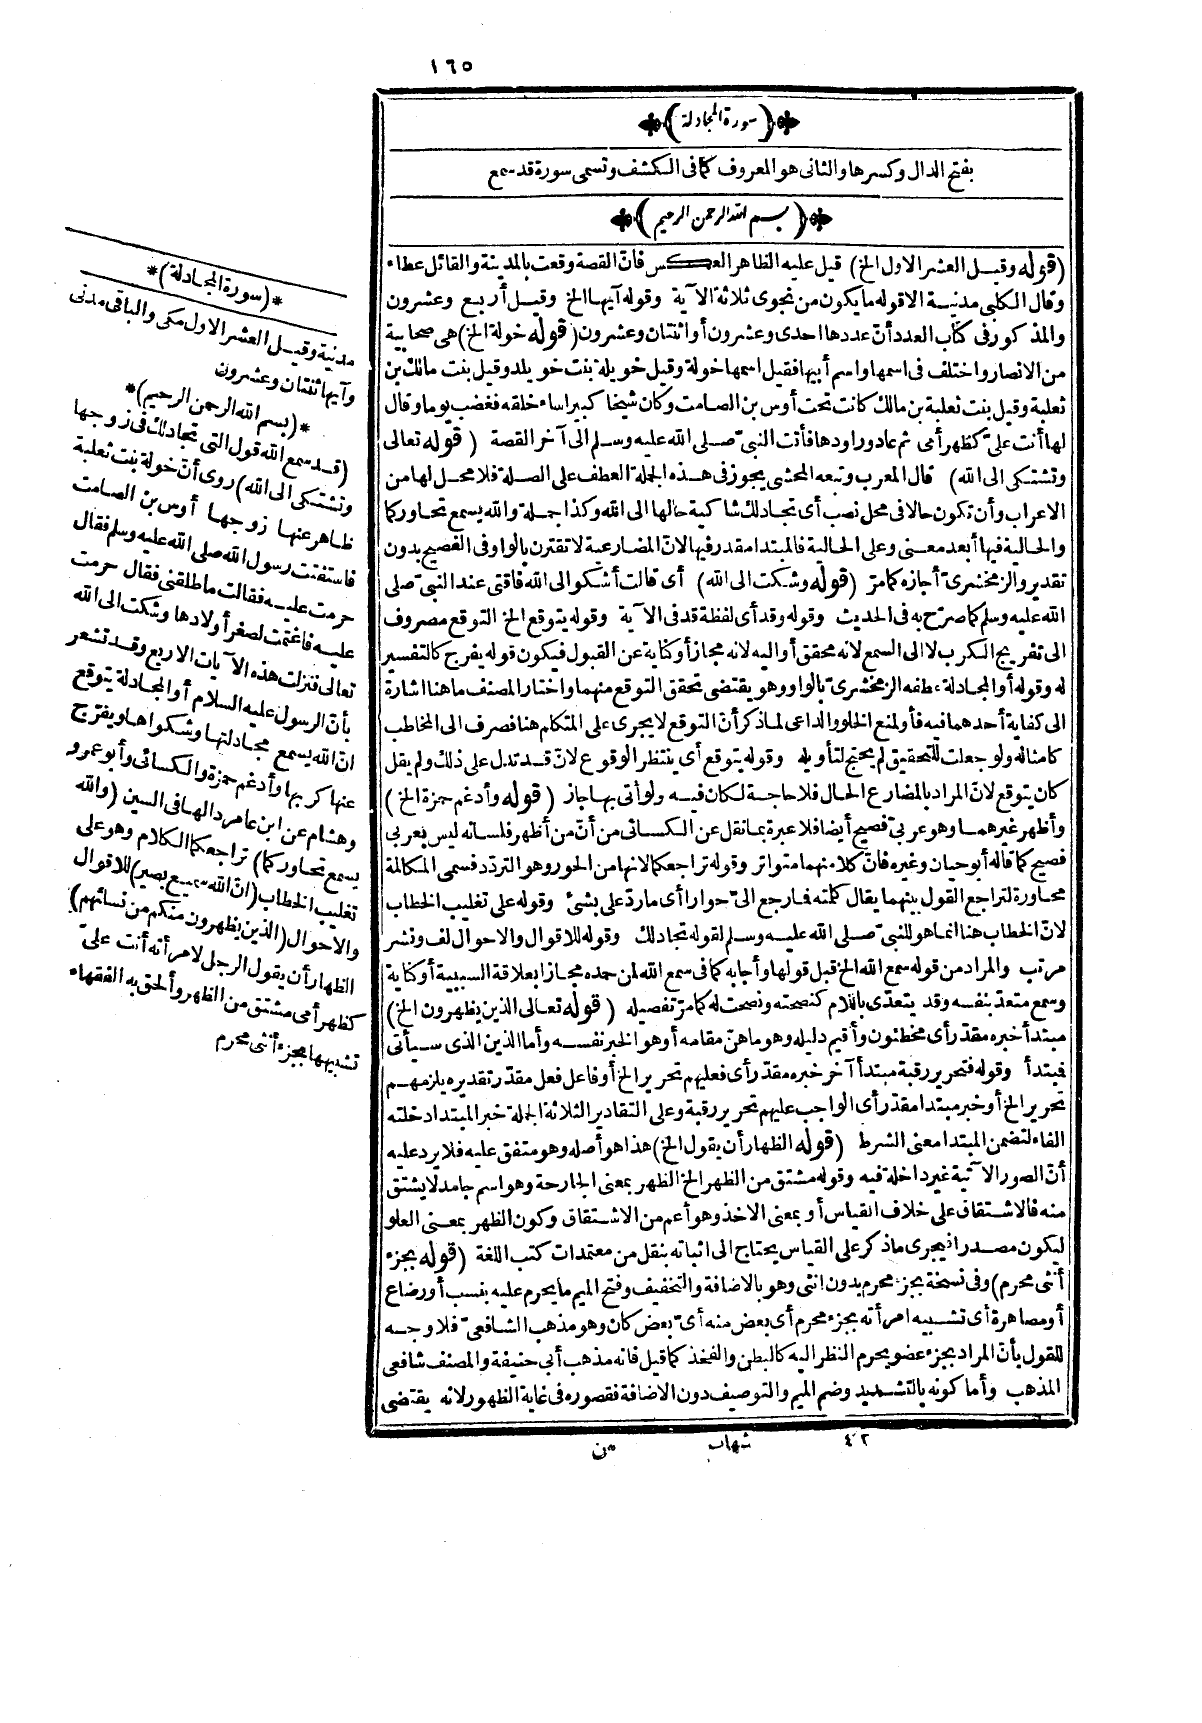 ١٦٥
(سورة المجادلة)
بفتح الدال وكسرها والثانى هو المعروف كما فى الكشف وتسمى سورة قد سمع
(بسم الله الرحمن الرحيم)
(قوله وقيل العشر الاول الخ) قيل عليه الظاهر العكس فانّ القصة وقعت بالمدينة والقائل عطاء
وقال الكلبى مدنية الاقوله ما يكون من نجوى ثلاثة الآية وقوله آيها الخ وقيل أربع وعشرون
والمذكور فى كتاب العدد أنّ عددها احدى وعشرون أو اثنتان وعشرون (قوله خولة الخ) هى صحابية
من الانصار واختلف فى اسمها واسم أبيها فقيل اسمها خولة وقيل خويلة بنت خويلد وقيل بنت مالك بن
ثعلبة وقيل بنت ثعلبة بن مالك كانت تحت أوس بن الصامت وكان شيخا كبيرا ساء خلقه فغضب يوما وقال
لها أنت علىّ كظهر أمى ثم عاد وراودها فأتت النبىّ صلى الله عليه وسلم الى آخر القصة (قوله تعالى
وتشتكى الى الله) قال المعرب وتبعه المحشى يجوز فى هذه الجملة العطف على الصلة فلا محل لها من
الاعراب وأن تكون حالا فى محل نصب أى تجادلك شاكية حالها الى الله وكذا جملة والله يسمع تحاوركما
والحالية فيها أبعد معنى وعلى الحالية فالمبتدا مقدر فيها لانّ المضارعية لا تقترن بالواو فى الفصيح بدون
تقدير والزمخشرىّ أجازه كما مرّ (قوله وشكت الى الله) أى قالت أشكو الى الله فاقتى عند النبىّ صلى
الله عليه وسلم كما صرّح به فى الحديث وقوله وقد أى لفظة قد فى الآية وقوله يتوقع الخ التوقع مصروف
الى تفريج الكرب لا الى السمع لانه محقق أو اليه لانه مجاز أو كناية عن القبول فيكون قوله يفرج كالتفسير
له وقوله أو المجادلة عطفه الزمخشرىّ بالواو وهو يقتضى تحقق التوقع منهما واختار المصنف ما هنا اشارة
الى كفاية أحدهما فيه فأو لمنع الخلو والداعى لما ذكر أنّ التوقع لا يجرى على المتكلم هنا فصرف الى المخاطب
كامثاله ولو جعلت للتحقيق لم يحتج لتأويله وقوله يتوقع أى ينتظر الوقوع لانّ قد تدل على ذلك ولم يقل
كان يتوقع لانّ المراد بالمضارع الحال فلا حاجة لكان فيه ولو أتى بها جاز (قوله وأدغم حمزة الخ)
وأظهر غيرهما وهو عربىّ فصيح أيضا فلا عبرة بما نقل عن الكسائى من أنّ من أظهر فلسانه ليس بعربى
فصيح كما قاله أبو حيان وغيره فانّ كلا منهما متواتر وقوله تراجعكما لانها من الحور وهو التردّد فسمى المكالمة
محاورة لتراجع القول بينهما يقال كلمته فارجع الىّ حوارا أى ما ردّ على بشئ وقوله على تغليب الخطاب
لانّ الخطاب هنا انما هو للنبىّ صلى الله عليه وسلم لقوله تجادلك وقوله للاقوال والاحوال لف ونشر
مرتب والمراد من قوله سمع الله الخ قبل قولها وأجابه كما فى سمع الله لمن حمده مجازا بعلاقة السببية أو كناية
وسمع متعدّ بنفسه وقد يتعدّى باللام كنصحته ونصحت له كما مرّ تفصيله (قوله تعالى الذين يظهرون الخ)
مبتدأ خبره مقدّر أى مخطئون وأقيم دليله وهو ما هنّ مقامه أو هو الخبر نفسه وأما الذين الذى سيأتى
فبتدأ وقوله فتحرير رقبة مبتدأ آخر خبره مقدّر أى فعليهم تحرير الخ أو فاعل فعل مقدّر تقديره يلزمهم
تحرير الخ أو خبر مبتدا مقدّر أى الواجب عليهم تحرير رقبة وعلى التقادير الثلاثة الجملة خبر المبتدا دخلته
الفاء لتضمن المبتدا معنى الشرط (قوله الظهار أن يقول الخ) هذا هو أصله وهو متفق عليه فلا يرد عليه
أنّ الصور الآتية غير داخلة فيه وقوله مشتق من الظهر الخ الظهر بمعنى الجارحة وهو اسم جامد لا يشتق
منه فالاشتقاق على خلاف القياس أو بمعنى الاخذ وهو أعم من الاشتقاق وكون الظهر بمعنى العلو
ليكون مصدرا فيجرى ما ذكر على القياس يحتاج الى اثباته بنقل من معتمدات كتب اللغة (قوله بجزء
أنثى محرم) وفى نسخة بجزء محرم بدون انثى وهو بالاضافة والتخفيف وفتح الميم ما يحرم عليه بنسب أو رضاع
أو مصاهرة أى تشبيه امرأته بجزء محرم أى بعض منه أىّ بعض كان وهو مذهب الشافعىّ فلا وجه
للقول بأنّ المراد بجزء عضو يحرم النظر اليه كالبطن والفخذ كما قيل فانه مذهب أبى حنيفة والمصنف شافعى
المذهب وأما كونه بالتشديد وضم الميم والتوصيف دون الاضافة فقصوره فى غاية الظهور لانه يقتضى
٤٢ شهاب من
*(سورة المجادلة)*
مدنية وقيل العشر الاول مكى والباقى مدنى
وآيها ثنتان وعشرون
*(بسم الله الرحمن الرحيم)*
(قد سمع الله قول التى تجادلك فى زوجها
وتشتكى الى الله) روى أنّ خولة بنت ثعلبة
ظاهر عنها زوجها أوس بن الصامت
فاستفتت رسول الله صلى الله عليه وسلم فقال
حرمت عليه فقالت ما طلقنى فقال حرمت
عليه فاغتمت لصغر أولادها وشكت الى الله
تعالى فنزلت هذه الآيات الاربع وقد تشعر
بأنّ الرسول عليه السلام أو المجادلة يتوقع
انّ الله يسمع مجادلتها وشكواها ويفرّج
عنها كربها وأدغم حمزة والكسائى وأبو عمرو
وهشام عن ابن عامر دالها فى السين (والله
يسمع تحاوركما) تراجعكما الكلام وهو على
تغليب الخطاب (انّ الله سميع بصير) للاقوال
والاحوال (الذين يظهرون منكم من نسائهم)
الظهار أن يقول الرجل لامرأته أنت علىّ
كظهر أمى مشتق من الظهر وألحق به الفقهاء
تشبيهها بجزء أنثى محرم